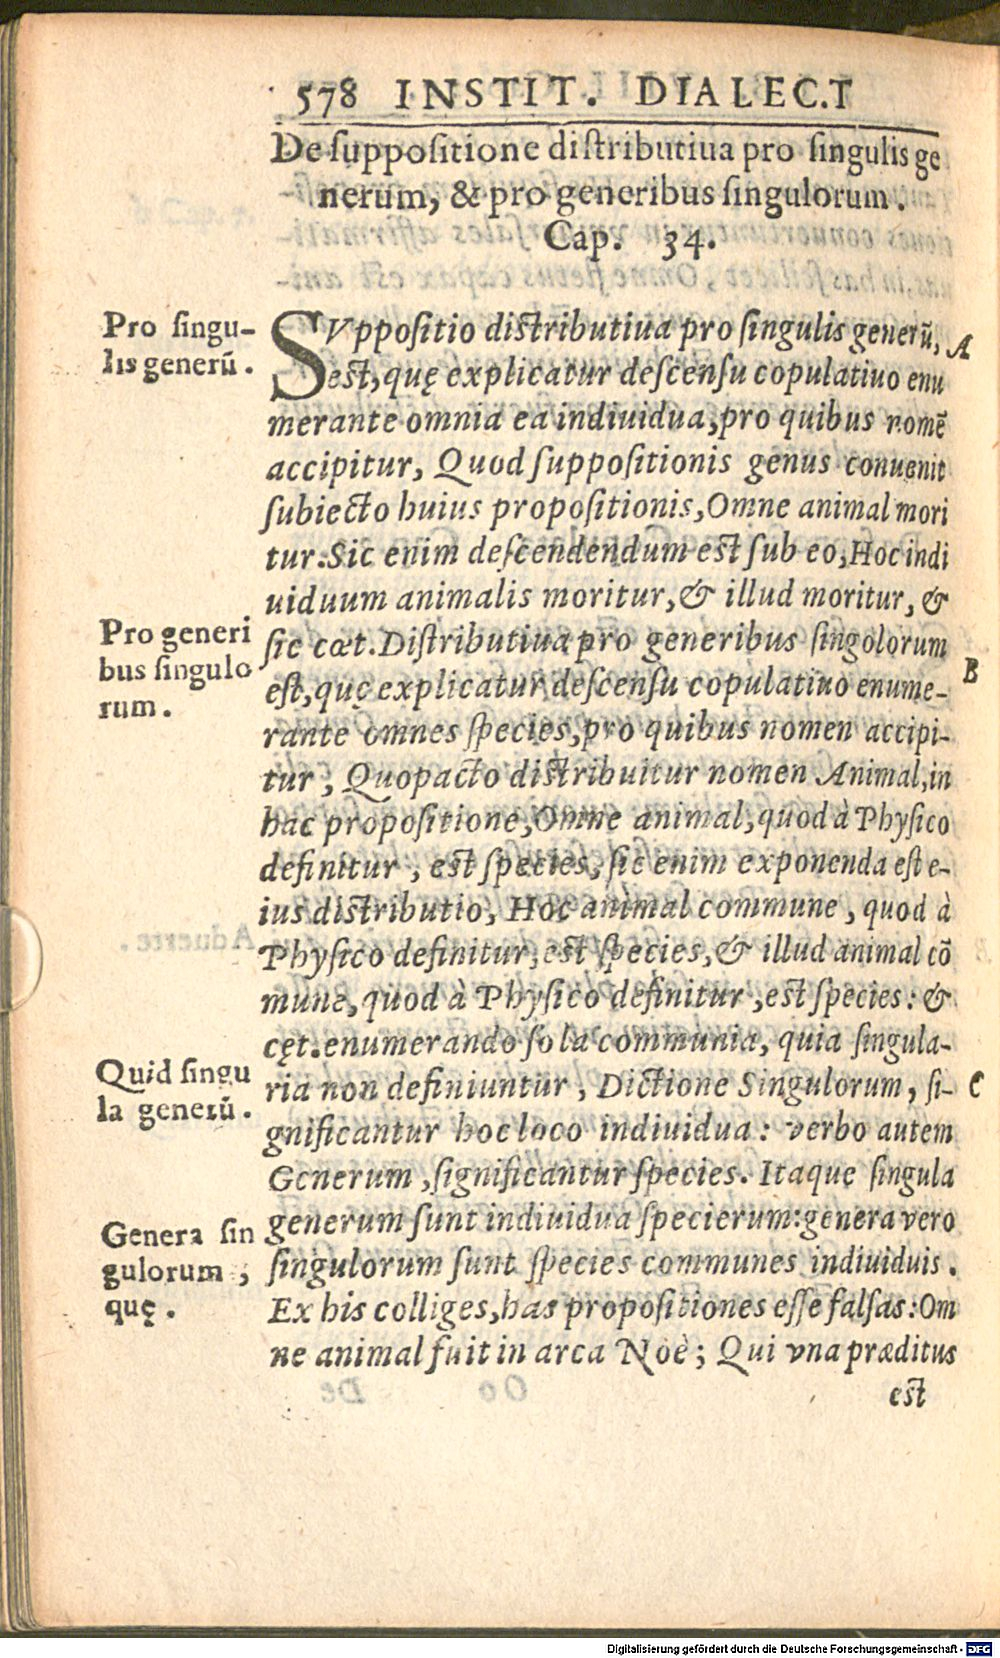 578 INSTIT. DIALEC.T
De suppositione distributiua pro singulis ge
nerum, & pro generibus singulorum.
Cap. 34.
Pro singu-
lis generũ.
SVppositio distributiua pro singulis generũ,
A
est, quę explicatur descensu copulatiuo enu
merante omnia ea indiuidua, pro quibus nomẽ
accipitur, Quod suppositionis genus conuenit
subiecto huius propositionis, Omne animal mori
tur. Sic enim descendendum est sub eo, Hoc indi
uiduum animalis moritur, & illud moritur, &
Pro generi
bus singulo
rum.
sic cæt. Distributiua pro generibus singolorum
B
est, quę explicatur descensu copulatiuo enume-
rante omnes species, pro quibus nomen accipi-
tur, Quopacto distribuitur nomen Animal, in
hac propositione, Omne animal, quod à Physico
definitur, est species, sic enim exponenda est e-
ius distributio, Hoc animal commune, quod à
Physico definitur, est species, & illud animal cõ
mune, quod à Physico definitur, est species: &
cęt. enumerando sola communia, quia singula-
Quid singu
la generũ.
ria non definiuntur, Dictione Singulorum, si-
C
gnificantur hoc loco indiuidua: verbo autem
Generum, significantur species. Itaque singula
generum sunt indiuidua specierum: genera vero
Genera sin
gulorum,
quę.
singulorum sunt species communes indiuiduis.
Ex his colliges, has propositiones esse falsas: Om
ne animal fuit in arca Noè; Qui vna præditus
est
Digitalisierung gefördert durch die Deutsche Forschungsgemeinschaft - DFG